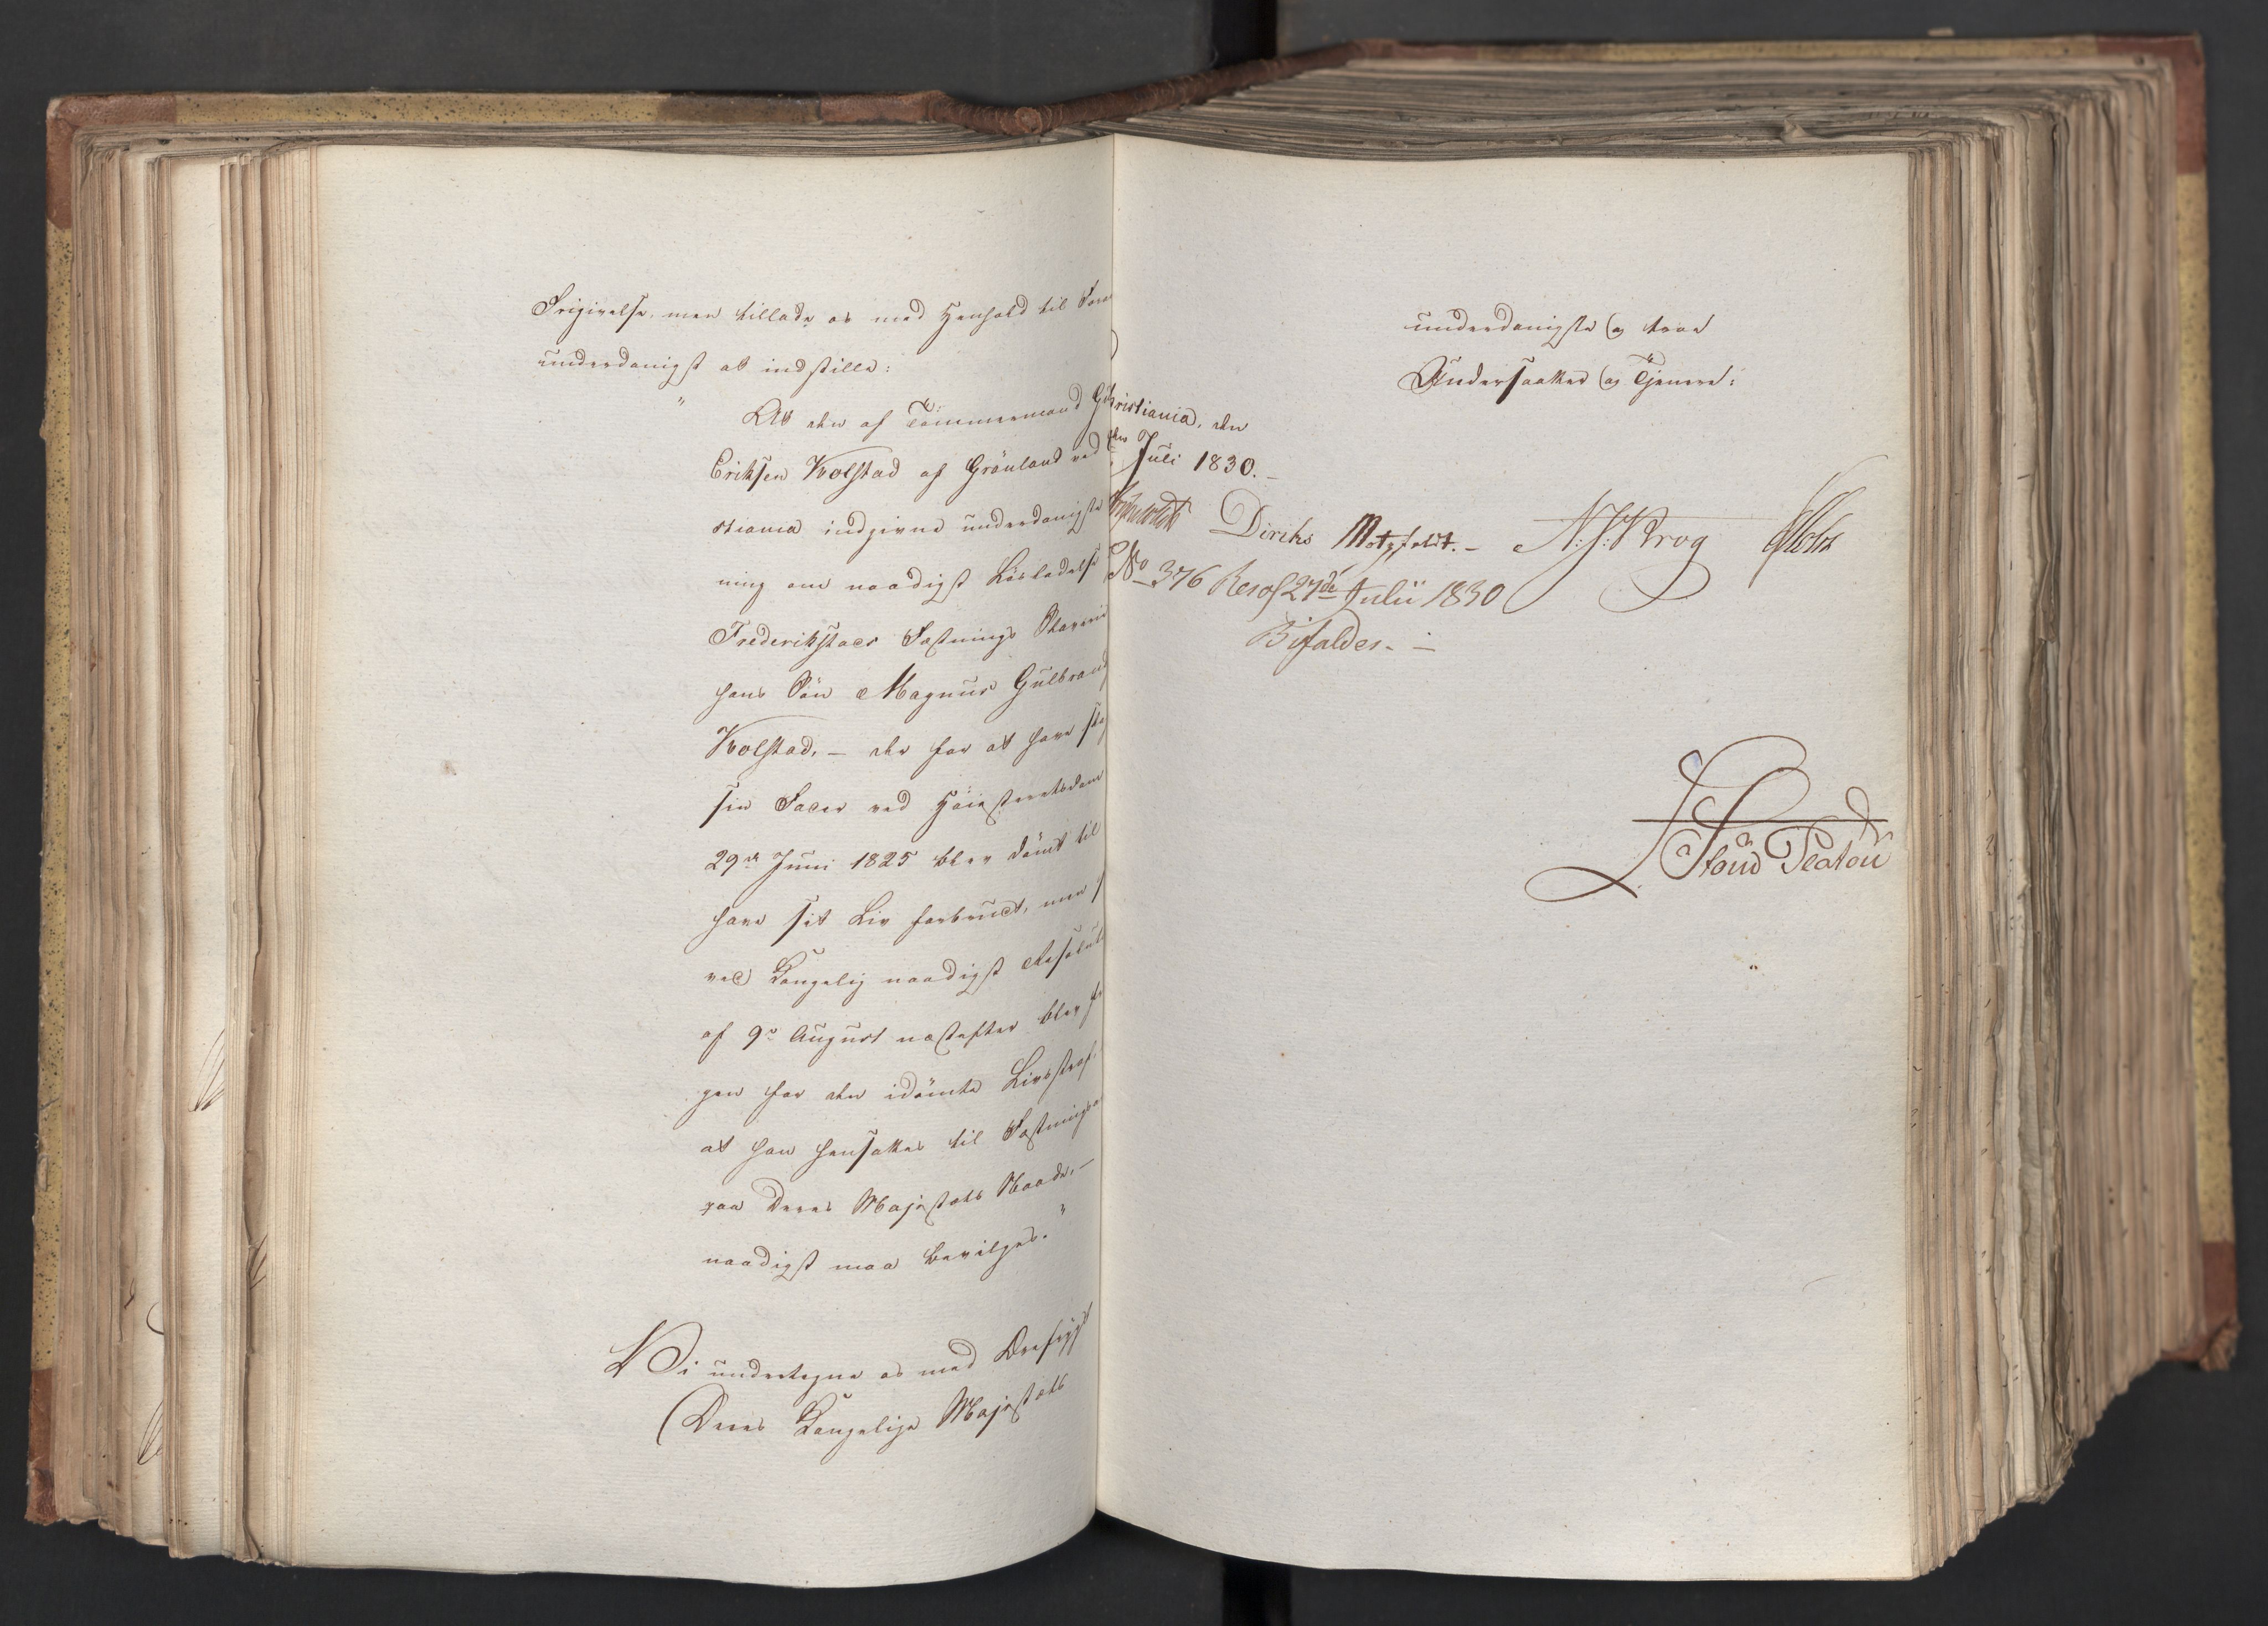 Frigivelse, men tillade os med Henhold til
underdanigst at indstille:
" At den af Tömmermand
Eriksen Kolstad af Grönland ved
stiania indgivne underdanigste
ning om naadigst Lösladelse
Frederikstads Fæstnings Slaverie
hans Sön Magnus Gulbrand
Kolstad, – der for at have
sin Fader ved Höiesteretsdom
29de Juni 1825 blev dömt til
have sit Liv forbrudt, men
ved Kongelig naadigst Resolut
af 9de August næstefter blev
gen for den idömte Livsstraf,
at han hensættes til Fæstnings
paa Deres Majestæts Naade, –
naadigst maa bevilges."
Vi undertegne os med Dybeste
Deres Kongelige Majestæts
underdanigste og troe
Undersaatter og Tjenere:
ristiania, den
Juli 1830. –
Diriks Motzfeldt. – N. J. Krog
No 376 Resol 27de Julii 1830
Bifaldes. –
Stoud Platou